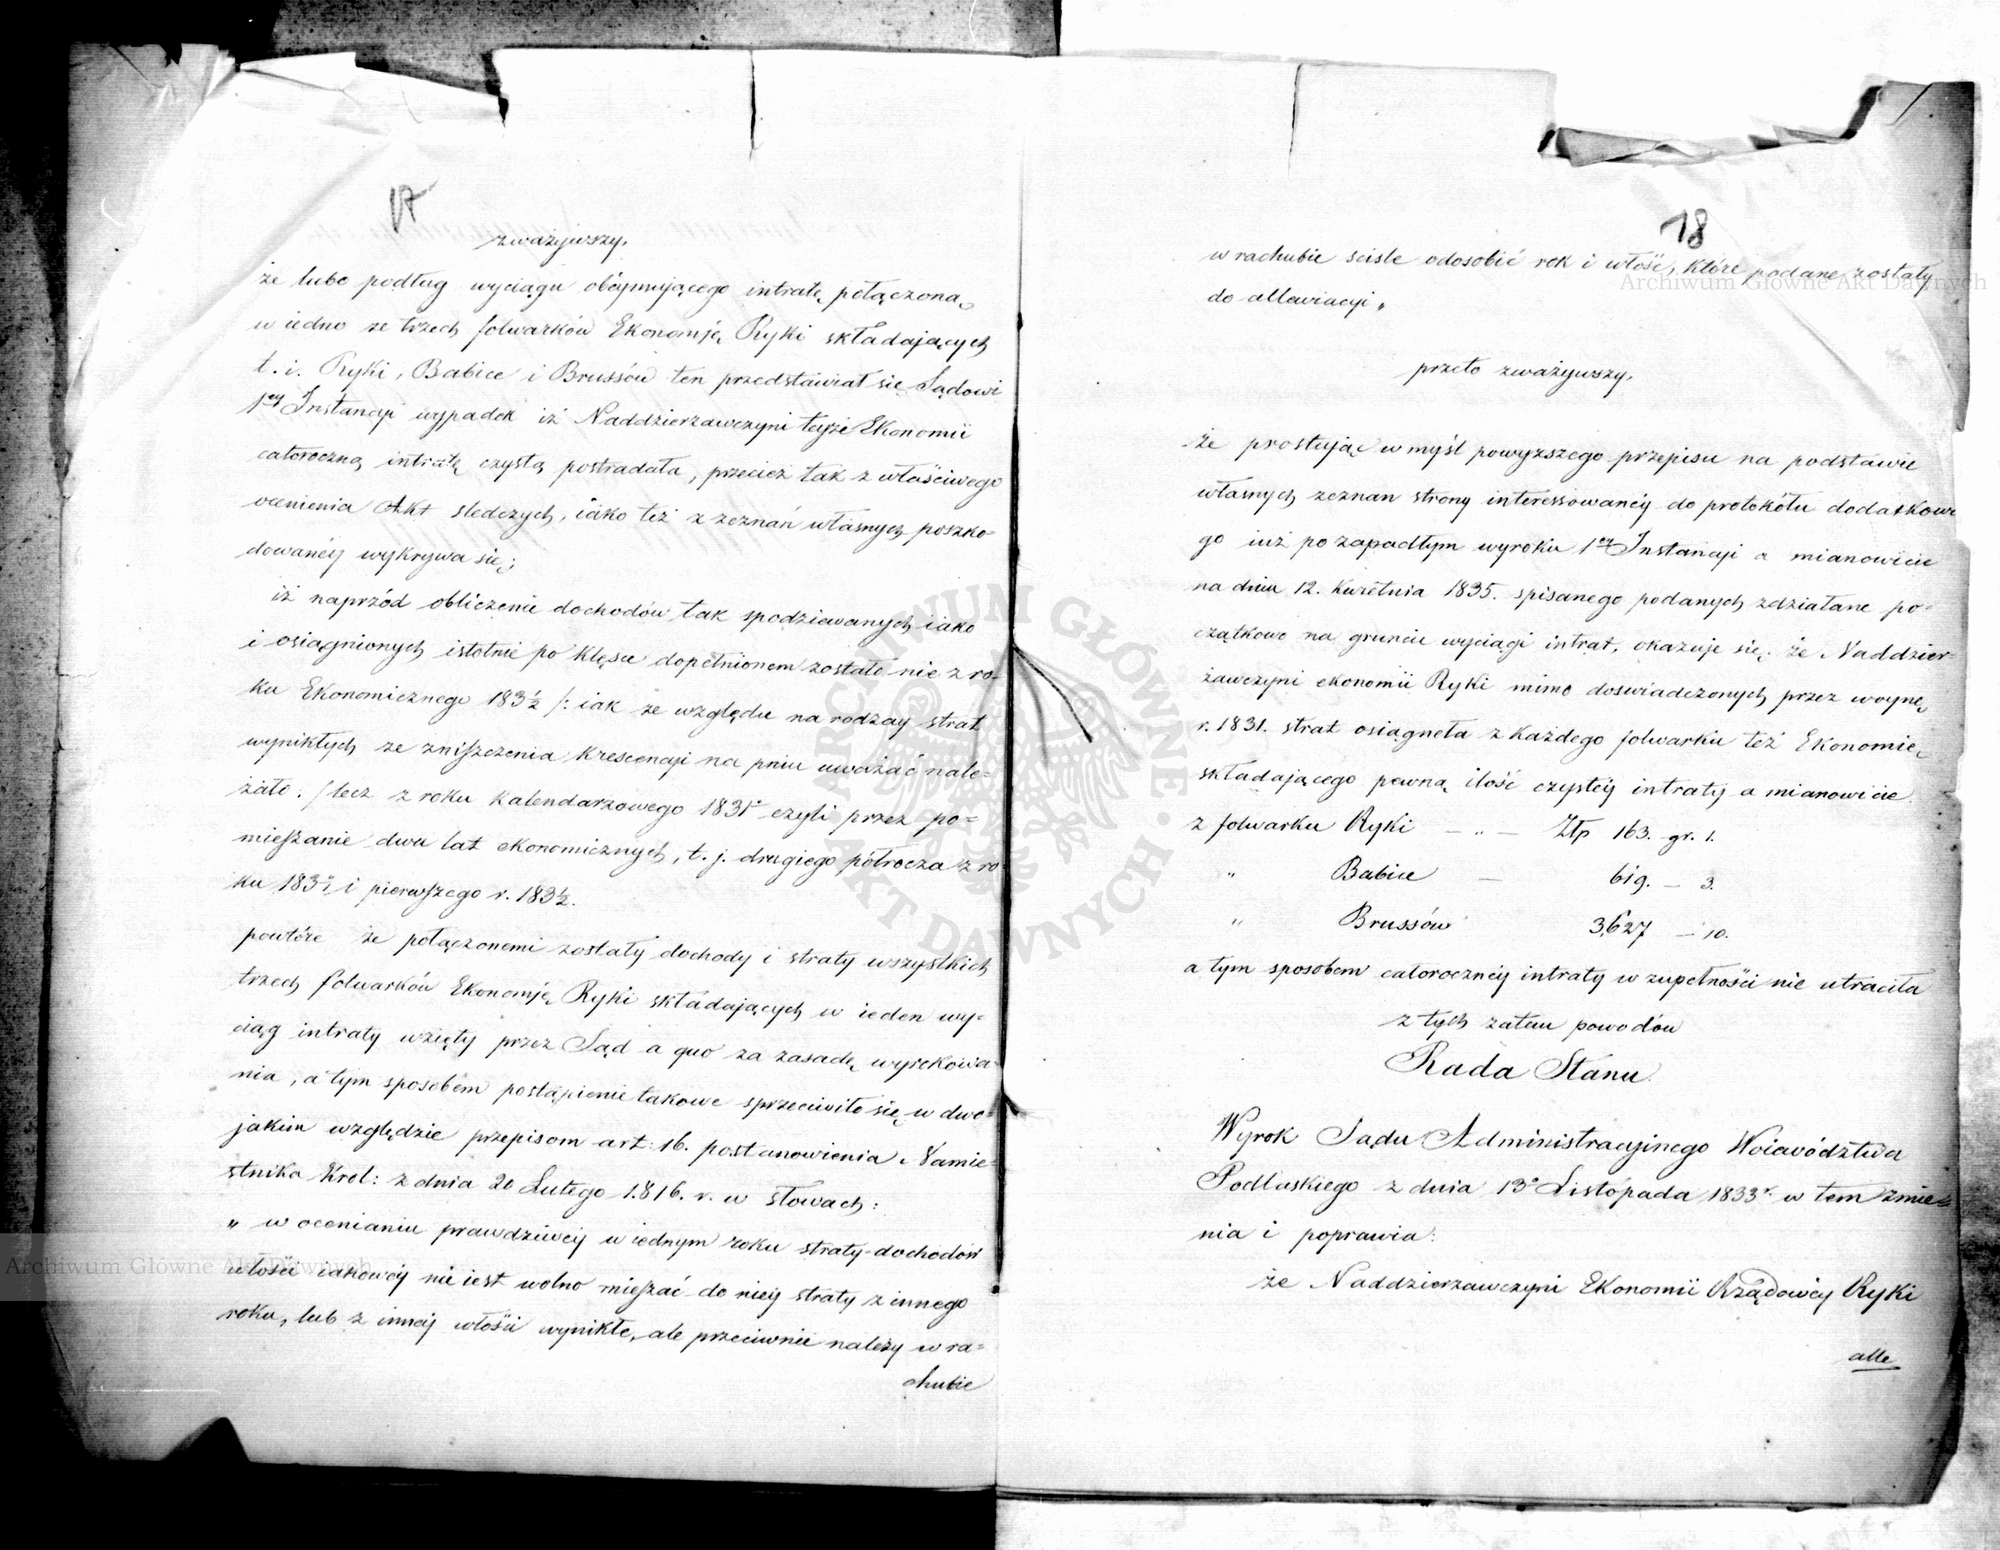 17
zważywszy,
że lubo podług wyciągu obéymującego intratę połączoną
w iedno ze trzech folwarków Ekonomję Ryki składających
t. i. Ryki, Babice i Brussów ten przedstawiał sie Sądowi
1ey Instancyi wypadek iż Naddzierzawczyni teyże Ekonomii
całoroczną intratę czystą postradała, przecież tak z właściwego
ocenienia Akt sledczych, iáko też z zeznań własnych poszko-
dowanéy wykrywa się;
iż naprzód obliczenie dochodów tak spodziewanych iako
i osiągnionych istotnie po klęsce dopełnionem zostało nie z ro-
ku Ekonomicznego 183½ /: iak ze względu na rodzay strat
wynikłych ze zniszczenia krescencyi na pniu uważać nale-
żało :/ lecz z roku kalendarzowego 1831º czyli przez po-
mieszanie dwu lat ekonomicznych, t. j. drugiego półrocza z ro-
ku 183º/1 i pierwszego r. 183½.
powtóre że połączonemi zostały dochody i straty wszystkich
trzech folwarków Ekonomję Ryki składających w ieden wy-
ciąg intraty wzięty przez Sąd a quo za zasadę wyrokowa-
nia, a tym sposobem postąpienie takowe sprzeciwiło się w dwo-
jakim względzie przepisom art: 16. postanowienia Namie-
stnika Król: z dnia 20 Lutego 1816. r. w słowach:
„ w ocenianiu prawdziwéy w iednym roku straty dochodów
włości iakowéy nie iest wolno mieszać do niéy straty z innego
roku, lub z innéy włości wynikłe, ale przeciwnie należy w ra-
chubie
18
w rachubie scisle odosobić rok i włość, które podane zostały
do allewiacyi „
przeto zważywszy,
że prostując w myśl powyzszego przepisu na podstawie
własnych zeznan strony interessowanéy do protokółu dodatkowe
go iuż po zapadłym wyroku 1ey Instancyi a mianowicie
na dniu 12. Kwietnia 1835. spisanego podanych zdziałane po-
czątkowo na gruncie wyciągi intrat, okazuje się; że Naddzier-
żawczyni ekonomii Ryki mimo doswiadczonych przez woynę
r. 1831. strat osiągneła z każdego folwarku też Ekonomię
składającego pewną ilość czystéy intraty a mianowicie
z folwarku Ryki — „ — Złp 163. gr. 1.
„ Babice — 619. — 3.
„ Brussów 3,627 — 10.
a tym sposobem całorocznéy intraty w zupełności nie utraciła
z tych zatem powodów
Rada Stanu
Wyrok Sądu Administracyjnego Woiewództwa
Podlaskiego z dnia 13º Listopada 1833r. w tem zmie-
nia i poprawia:
że Naddzierzawczyni Ekonomii Rządowéy Ryki
alle
Archiwum Główne Akt Dawnych
Archiwum Główne Akt Dawnych
ARCHIWUM GŁÓWNE · AKT DAWNYCH ·